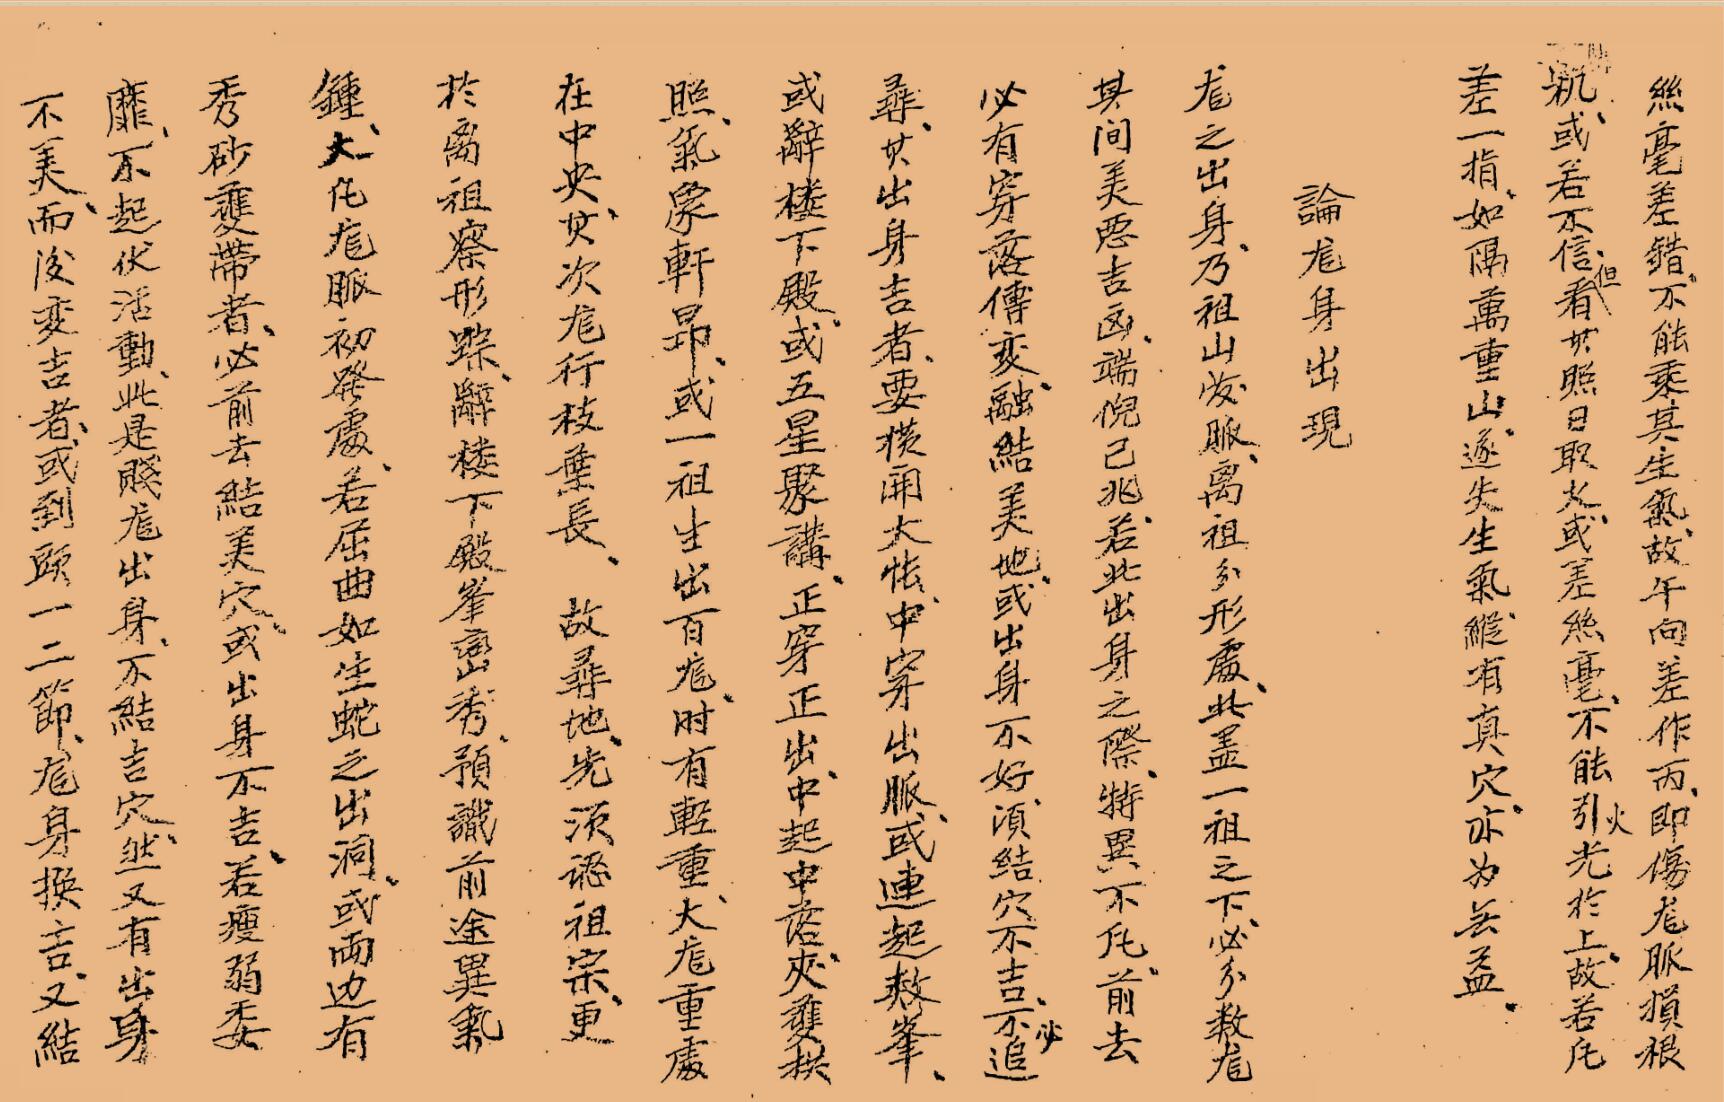 絲毫差錯不能乘其生氣故午向差作丙即傷龙脈損根
或若不信但看其照日取火或差絲毫不能引火光於上故若凡
差一指如隔萬重山遂失生氣縱有真穴亦为无益
論龙身出現
龙之出身乃祖山发脈离祖分形處此盖一祖之下必分数龙
其间美恶吉凶端倪已兆若此出身之際特異不凡前去
必有穿落傳变融結美地或出身不好湏結穴不吉不必追
尋其出身吉者要横开大帐中穿出脈或連起数峯
或辭楼下殿或五星聚講正穿正出中起中落夾雙拱
照氣象軒昂或一祖生出百龙时有輕重大龙重處
在中央其次龙行枝葉長故尋地先须认祖宗更
於离祖察形踪辭楼下殿峯巒秀預識前途異氣
鍾大凡龙脈初發處若屈曲如生蛇之出洞或両边有
秀砂雙帶者必前去結美穴或出身不吉若瘦弱委
靡不起伏活動此是賤龙出身不結吉穴然又有出身
不美而後变吉者或到頭一二節龙身換吉又結